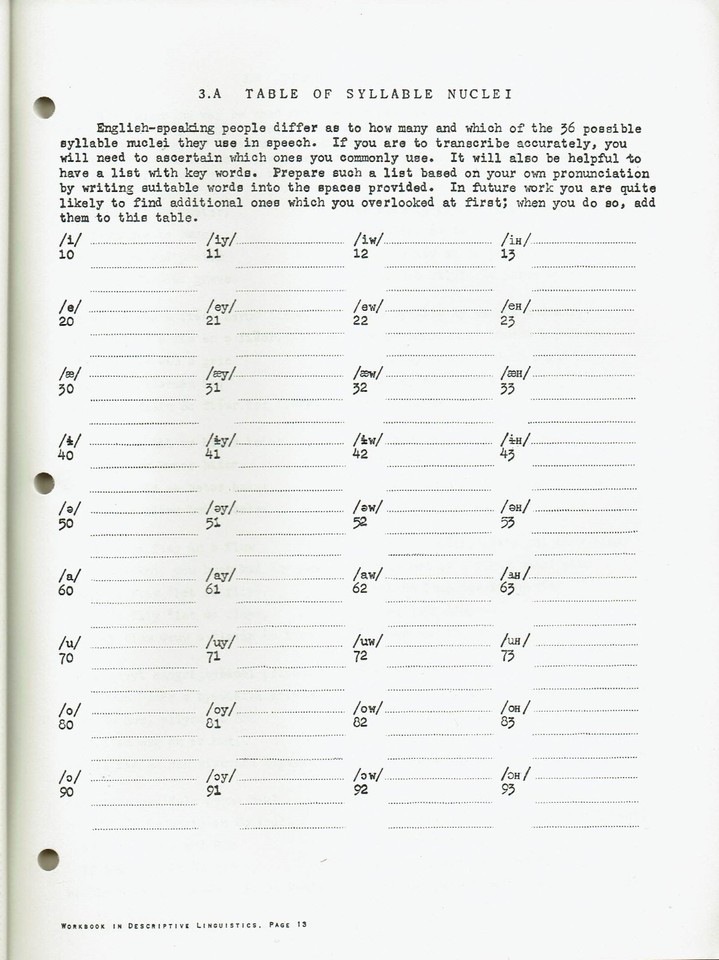 3.A TABLE OF SYLLABLE NUCLEI
English-speaking people differ as to how many and which of the 36 possible
syllable nuclei they use in speech. If you are to transcribe accurately, you
will need to ascertain which ones you commonly use. It will also be helpful to
have a list with key words. Prepare such a list based on your own pronunciation
by writing suitable words into the spaces provided. In future work you are quite
likely to find additional ones which you overlooked at first; when you do so, add
them to this table.
/i/ /iy/ /iw/ /iH/
10 11 12 13
/e/ /ey/ /ew/ /eH/
20 21 22 23
/æ/ /æy/ /æw/ /æH/
30 31 32 33
/ɨ/ /ɨy/ /ɨw/ /ɨH/
40 41 42 43
/ə/ /əy/ /əw/ /əH/
50 51 52 53
/a/ /ay/ /aw/ /aH/
60 61 62 63
/u/ /uy/ /uw/ /uH/
70 71 72 73
/o/ /oy/ /ow/ /oH/
80 81 82 83
/ɔ/ /ɔy/ /ɔw/ /ɔH/
90 91 92 93
WORKBOOK IN DESCRIPTIVE LINGUISTICS, PAGE 13